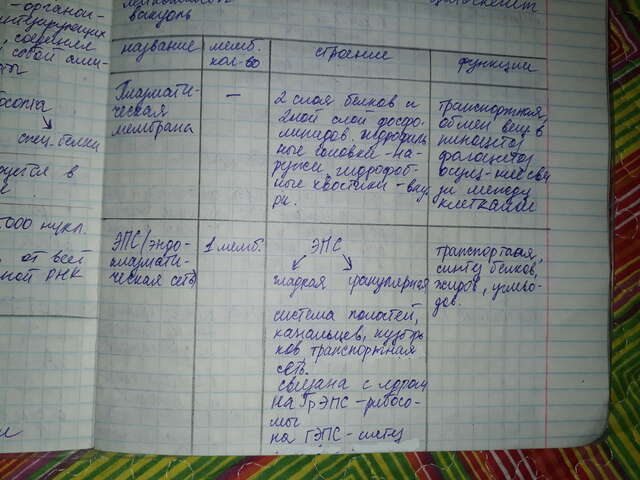 - органои-
соединен
собой
спец. белки
в
000 нукл.
от всей
ной РНК
вакуоль
название
мемб.
кол-во
строение
функции
Плазмати-
ческая
мембрана
—
2 слоя белков и
2ной слой фосфо-
липидов. гидрофиль
ные головки - на-
ружи, гидрофоб-
ные хвостики - вну
ри.
транспортная,
обмен вещ-в
пиноцитоз
фагоцитоз
осущ-ние свя
зи между
клетками
ЭПС (эндо-
плазмати-
ческая сеть)
1 мемб.
ЭПС
гладкая гранулярная
система полостей,
канальцев, пузырь
ков транспортная
сеть.
связана с ядром
на ГрЭПС - рибосо-
мы
на ГЭПС - синтез
транспортная,
синтез белков,
жиров, углево-
дов.